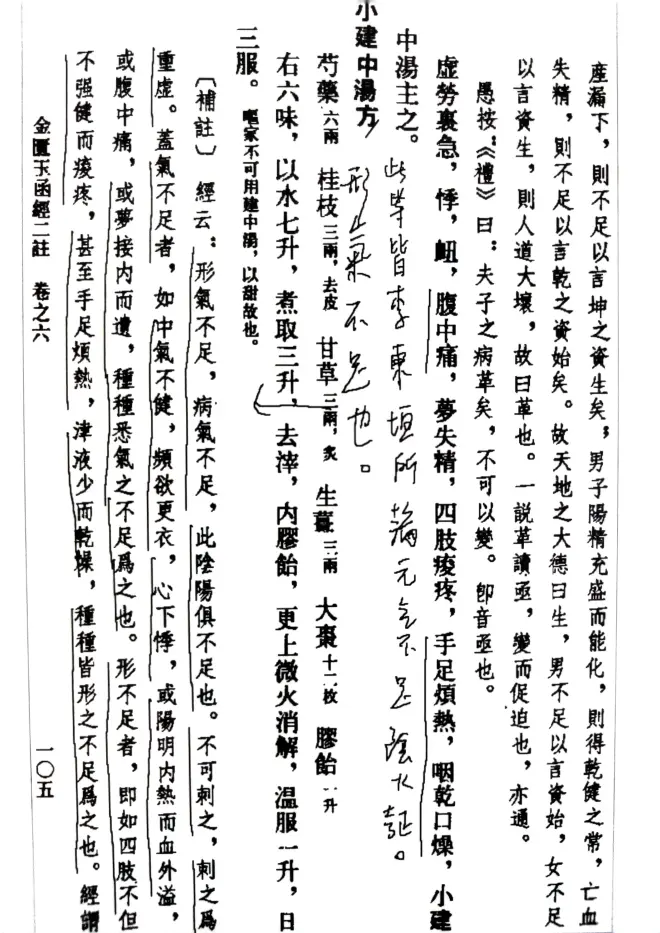 產漏下，則不足以言坤之資生矣；男子陽精充盛而能化，則得乾健之常，亡血
失精，則不足以言乾之資始矣。故天地之大德曰生，男不足以言資始，女不足
以言資生，則人道大壞，故曰革也。一説革讀亟，變而促迫也，亦通。
愚按：《禮》曰：夫子之病革矣，不可以變。卽音亟也。
虛勞裏急，悸，衄，腹中痛，夢失精，四肢痠疼，手足煩熱，咽乾口燥，小建
中湯主之。
此等皆李東垣所論元氣不足陰火證。
形氣不足也。
小建中湯方
芍藥六兩 桂枝三兩，去皮 甘草三兩，炙 生薑三兩 大棗十二枚 膠飴一升
右六味，以水七升，煮取三升，去滓，內膠飴，更上微火消解，温服一升，日
三服。嘔家不可用建中湯，以甜故也。
〔補註〕 經云：形氣不足，病氣不足，此陰陽俱不足也。不可刺之，刺之爲
重虛。蓋氣不足者，如中氣不健，頻欲更衣，心下悸，或陽明内熱而血外溢，
或腹中痛，或夢接内而遺，種種悉氣之不足爲之也。形不足者，即如四肢不但
不强健而痠疼，甚至手足煩熱，津液少而乾燥，種種皆形之不足爲之也。經謂
金匱玉函經二註 卷之六
一〇五